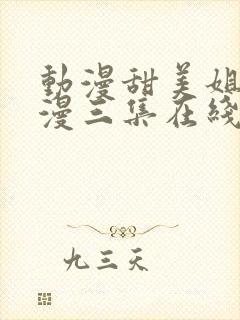 動漫甜美姐
漫三集在綫
九三天